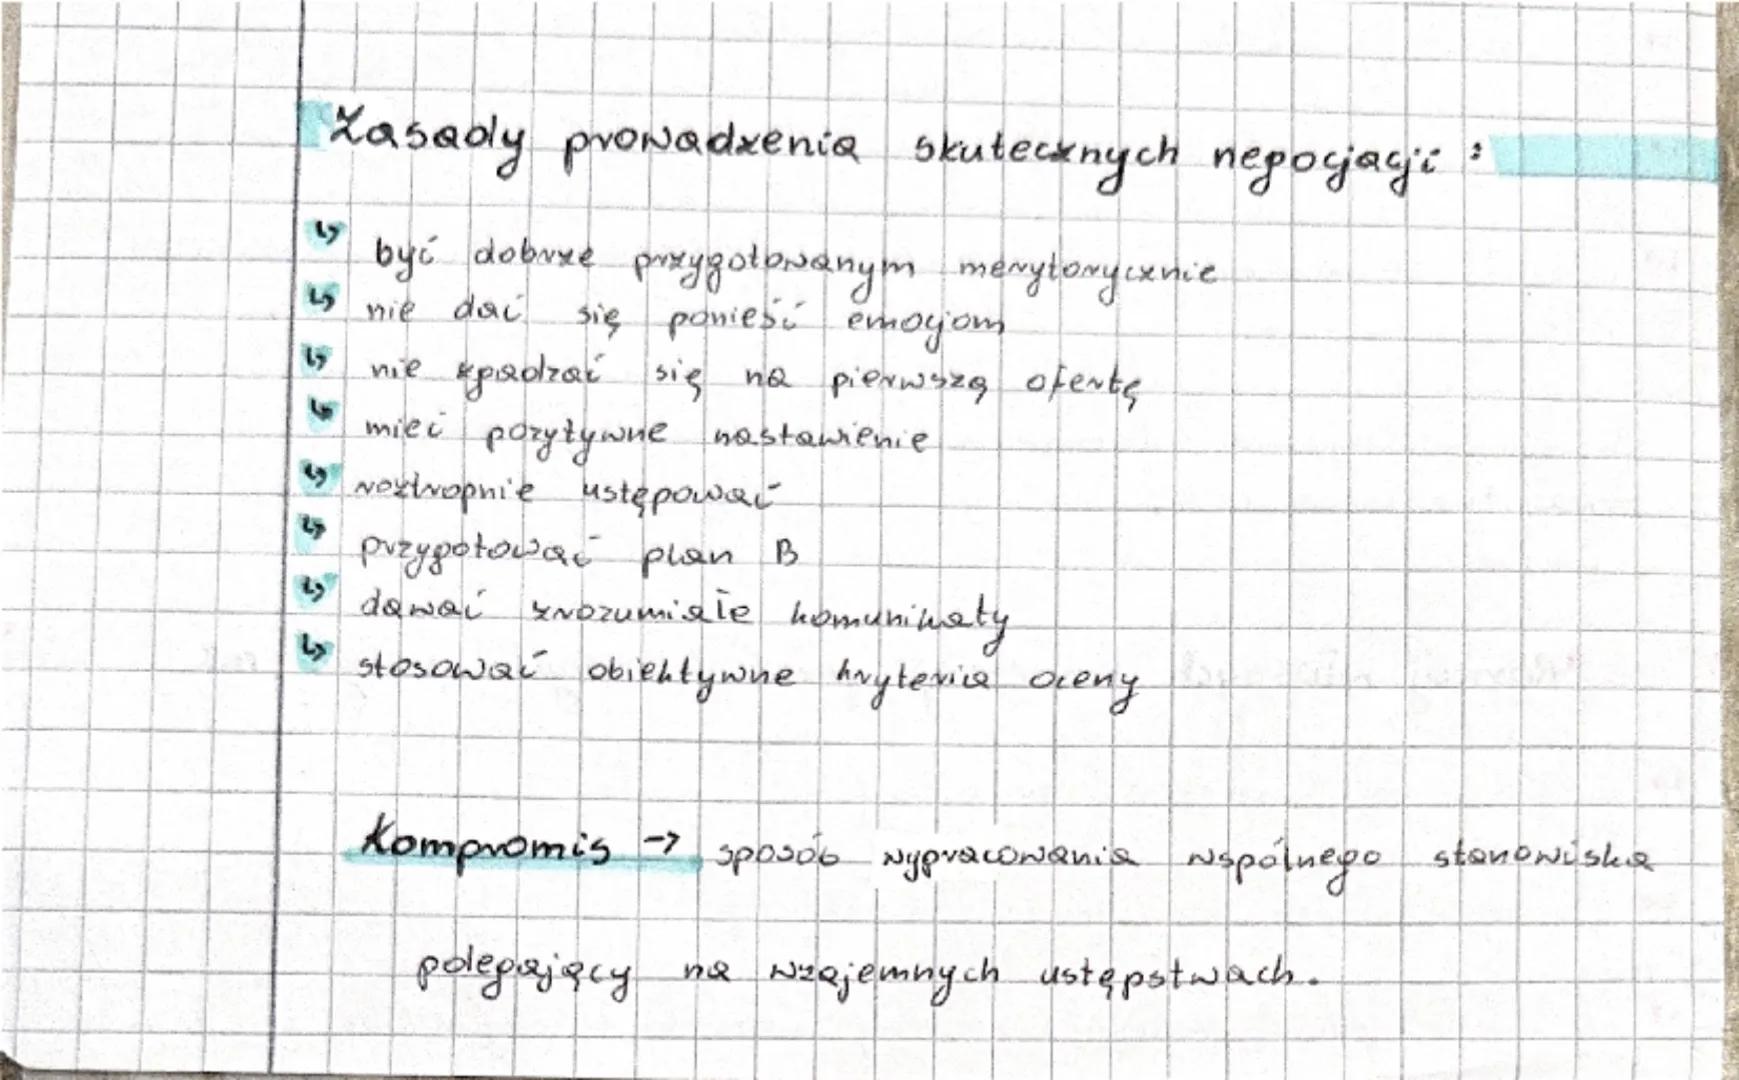 Zasady prowadzenia skutecznych negocjacji :
↳ być dobrze przygotowanym merytorycznie
↳ nie dać się ponieść emocjom
↳ nie zgadzać się na pierwszą ofertę
↳ mieć pozytywne nastawienie
↳ roztropnie ustępować
↳ przygotować plan B
↳ dawać zrozumiałe komunikaty
↳ stosować obiektywne kryteria oceny
Kompromis → sposób wypracowania wspólnego stanowiska
polegający na wzajemnych ustępstwach.